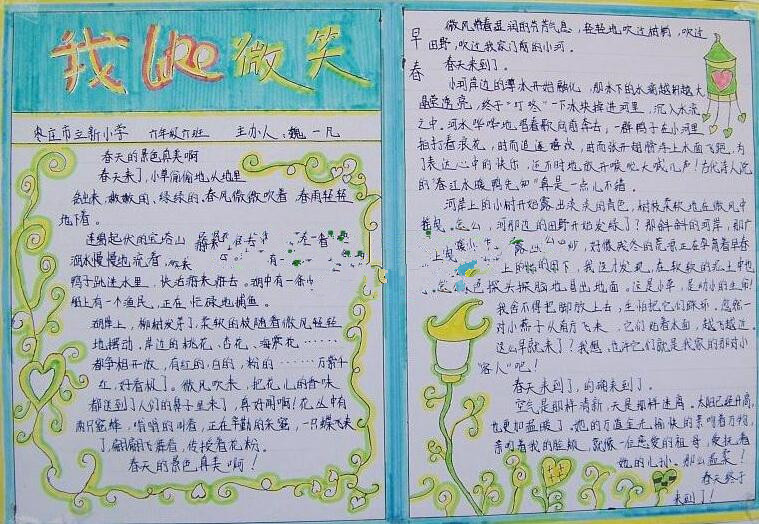 我 Like 微笑
枣庄市立新小学 六年级六班 主办人:魏一凡
春天的景色真美啊
春天来了,小草偷偷地从地里
钻出来,嫩嫩的,绿绿的。春风微微吹着,春雨轻轻
地下着。
连绵起伏的宝塔山
湖水慢慢地流着
鸭子趴进水里,快活游来游去。湖中有一条小
船上有一个渔民,正在忙碌地捕鱼。
湖岸上,柳树发芽了,柔软的枝随着微风轻轻
地摆动,岸边的桃花、杏花、海棠花……
都争相开放,有红的、白的、粉的……万紫千
红,好看极了。微风吹来,把花儿的香味
都送到了人们的鼻子里来,真好闻啊!花丛中有
两只蜜蜂,嗡嗡的叫着,正在辛勤的采蜜,一只蝶飞来
了,翩翩飞舞着,传授着花粉。
春天的景色真美啊!
早春
微风带着湿润的芳芳气息,轻轻地吹过树梢,吹过
田野,吹过我家门前的小河。
春天来到了。
小河岸边的薄冰开始融化,那冰下的水滴越积越大
晶莹透亮,终于“叮咚”一下冰块掉进河里,沉入水流
之中。河水哗哗地唱着歌向前奔去,一群鸭子在小河里
拍打着浪花,时而追逐嬉戏,时而张开翅膀浮上水面飞跑,为
了表达心中的快乐,还不时地放开喉咙大喊几声!古代诗人说
的“春江水暖鸭先知”真是一点儿不错。
河岸上的小树开始露出淡淡的青色,树枝柔软地在微风中
摇曳。怎么,河那边的田野开始发绿了?那斜斜的河岸,那广
好像残冬的荒凉正在孕育着早春
田下,我这才发现,在软软的泥土中也
探头探脑地冒出地面。这是小草,是幼小的生命!
我舍不得把脚放上去,生怕把它们踩坏。忽然一
对小燕子从南方飞来,它们贴着水面,越飞越近。
这么早就来了?我想,也许它们就是我家的那对小
“客人”吧!
春天来到了,的确来到了。
空气是那样清新,天是那样透亮。太阳已经升高,
也更加温暖了。她的万道金光愉快的亲吻着万物,
亲吻着我的脸颊,就像一位慈爱的祖母,爱抚着
她的儿孙。那么温柔!
春天终于
来到了!